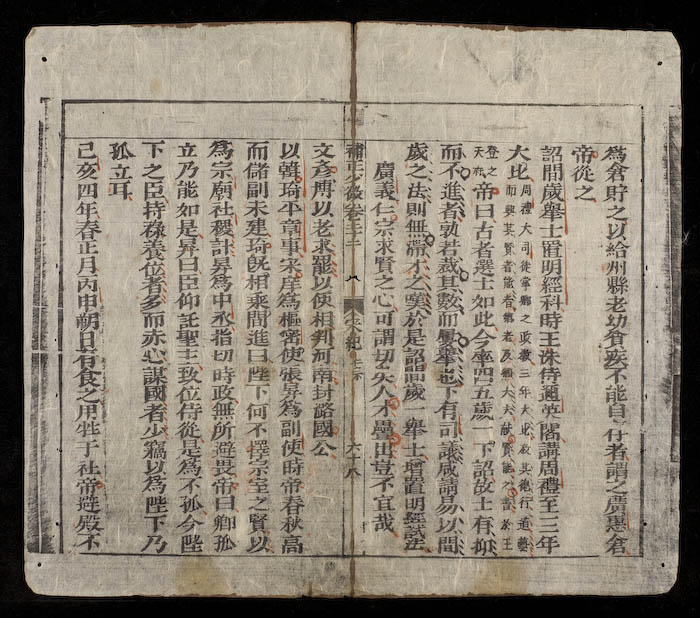 為倉貯之以給州縣老幼貧疾不能自存者謂之廣惠倉
帝從之
詔間歲舉士置明經科時王洙侍邇英閣講周禮至三年
大比周禮大司徒掌鄉之政教三年大比攷其德行道藝
而興其賢者能者鄉老及鄉大夫献賢能之書於王
登之天府帝曰古者選士如此今率四五歲一下詔故士有抑
而不進者孰若裁其數而屢舉也下有司議咸請易以間
歲之法則無滯才之嘆於是詔間歲一舉士增置明經試法
廣義仁宗求賢之心可謂切矣人才疊出豈不宜哉
補正少微卷三十二 八 宋紀 仁宗 六十八
文彥博以老求罷以使相判河南封潞國公
以韓琦平章事宋庠為樞密使張昇為副使時帝春秋高
而儲副未建琦旣相乘間進曰陛下何不擇宗室之賢以
為宗廟社稷計昇為中丞指切時政無所避畏帝曰卿孤
立乃能如是昇曰臣仰託聖主致位侍從是為不孤今陛
下之臣持祿養位者多而赤心謀國者少竊以為陛下乃
孤立耳
己亥四年春正月丙申朔日有食之用牲于社帝避殿不